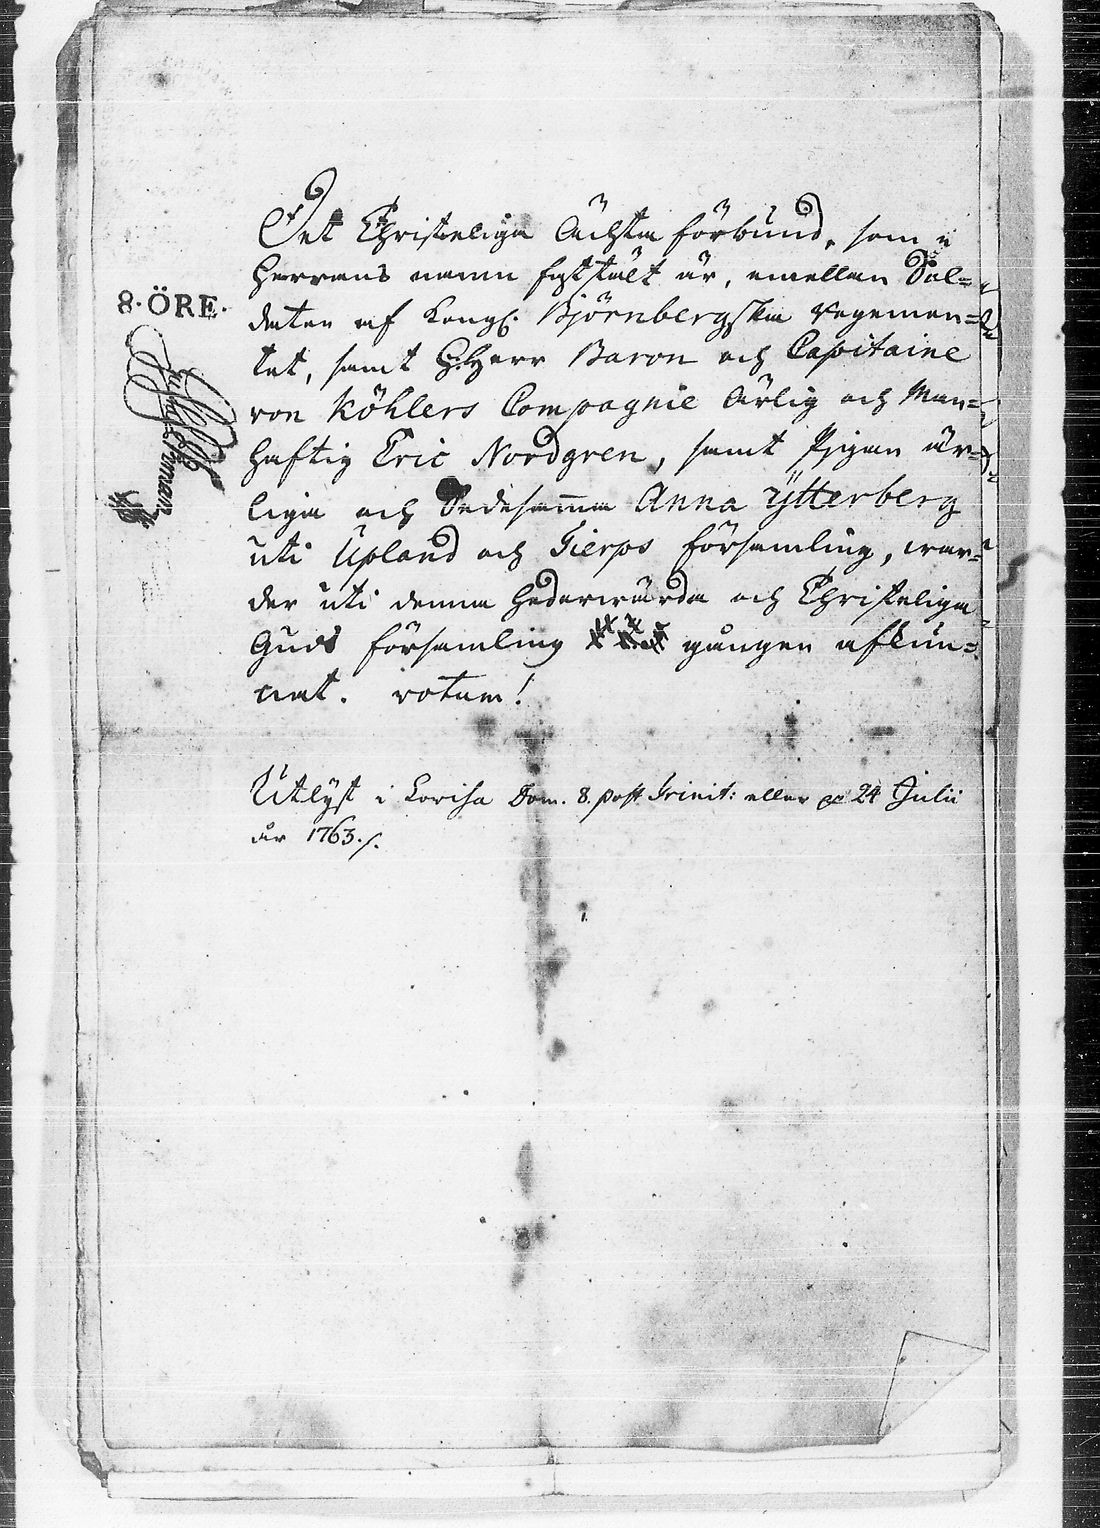 Det Christeliga Ächta förbund, som i
Herrans namn faststält är, emellan Sol=
daten af Kongl. Björnbergska Regemen=
8·ÖRE·
tet, samt H. Herr Baron och Capitaine
von Köhlers Compagnie Ärlig och Man=
haftig Eric Nordgren, samt Pigan är=
liga och Dedesamma Anna Ytterberg
uti Upland och Tierps församling, war=
der uti denna Hederwärda och Christeliga
Guds församling gången aflün=
nat. votum!
Utlyst i Lovisa Dom. 8. post Trinit: eller 24 Julii
år 1763./.